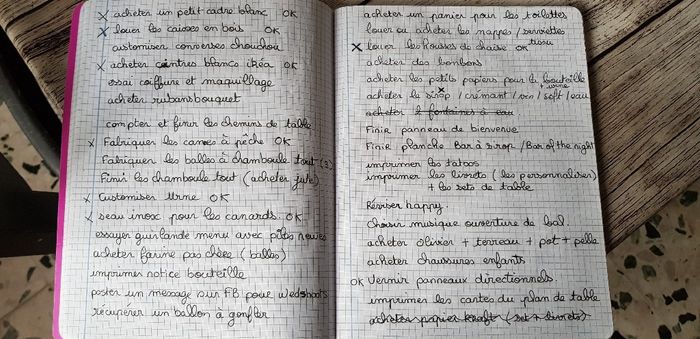 x acheter un petit cadre blanc OK
x louer les caisses en bois OK
customiser converses chouchou
x acheter cintres blancs ikéa OK
essai coiffure et maquillage
acheter rubans bouquet
compter et finir les chemins de table
x Fabriquer les cannes à pêche OK
Fabriquer les balles à chamboule tout (3)
Finir les chamboule tout (acheter jute)
x Customiser Urne OK
x seau inox pour les canards. OK
essayer guirlande menu avec piles neuves
acheter farine pas chère (balles)
imprimer notice bouteille
poster un message sur FB pour wedshoots
récupérer un ballon à gonfler
acheter un panier pour les toilettes
louer ou acheter les nappes / serviettes
tissu
x louer les housses de chaise OK
acheter des bonbons
acheter les petits papiers pour la bouteille
+ urne
acheter le sirop / crémant / vin / soft / eau
x
acheter 2 fontaines à eau.
Finir panneau de bienvenue
Finir planche Bar à sirop / Bar of the night
imprimer les tatoos
imprimer les livrets (les personnaliser)
+ les sets de table
Réviser happy.
Choisir musique ouverture de bal.
acheter olivier + terreau + pot + pelle
acheter chaussures enfants
OK Vernir panneaux directionnels.
imprimer les cartes du plan de table
acheter papier kraft (set + livrets)